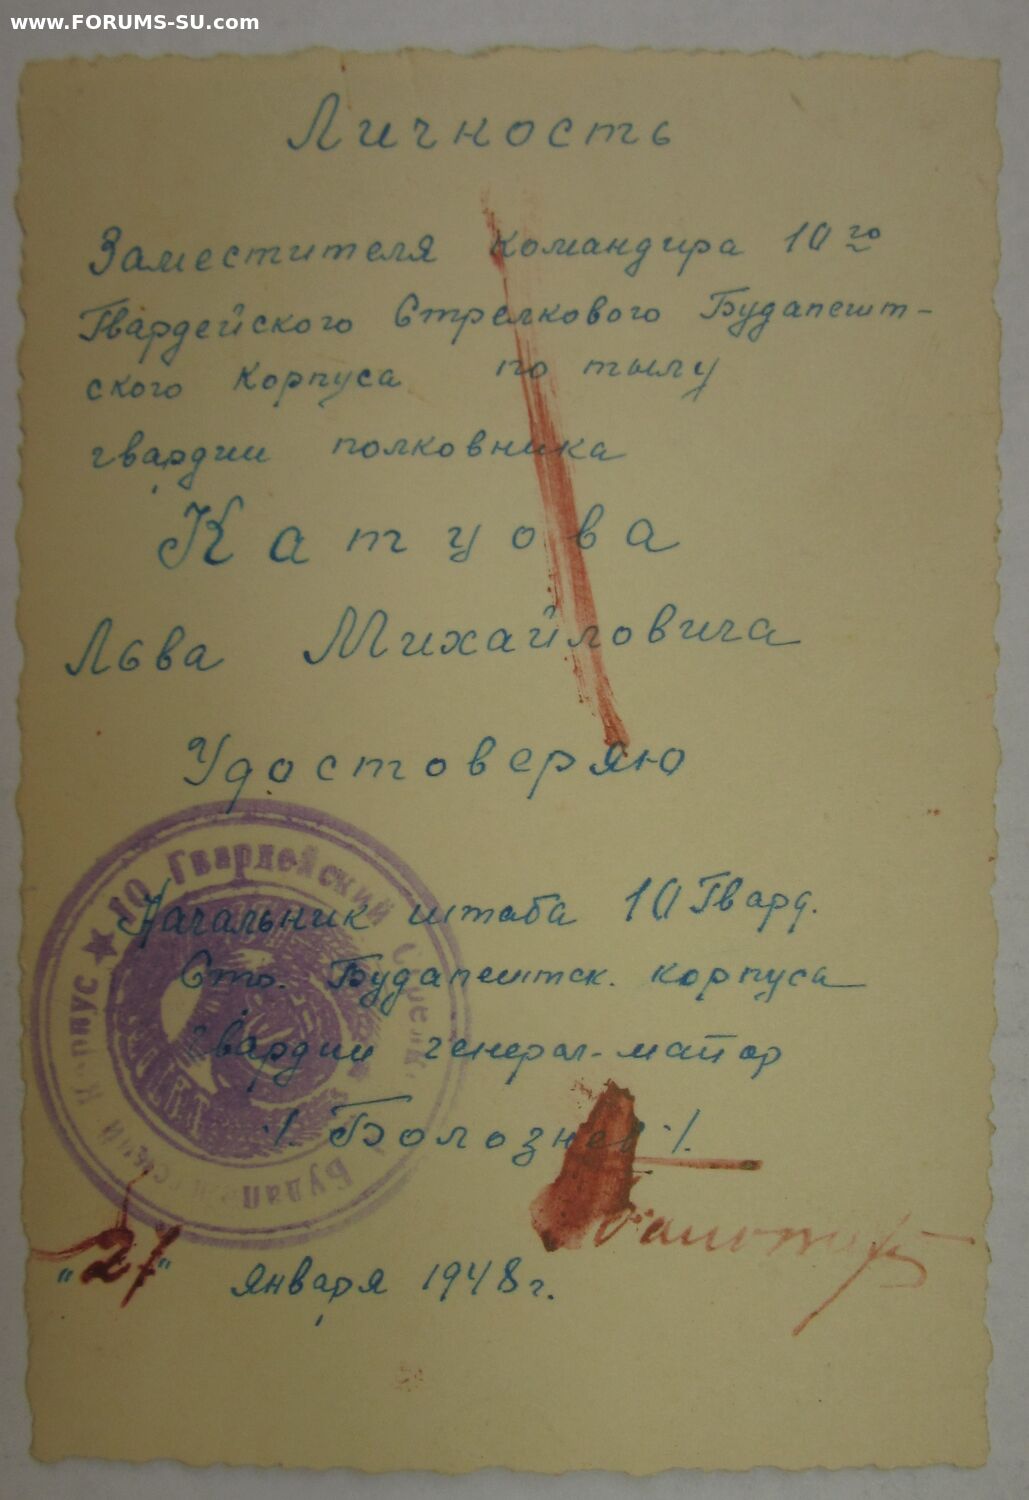 www.FORUMS-SU.com
Личность
Заместителя командира 10го
Гвардейского Стрелкового Будапешт-
ского Корпуса по тылу
гвардии полковника
Катцова
Льва Михайловича
Удостоверяю
Начальник штаба 10 Гвард.
Стр. Будапештск. корпуса
Гвардии генерал-майор
/. Болознев ./.
"21" января 1948 г.
10 Гвардейский Корпус